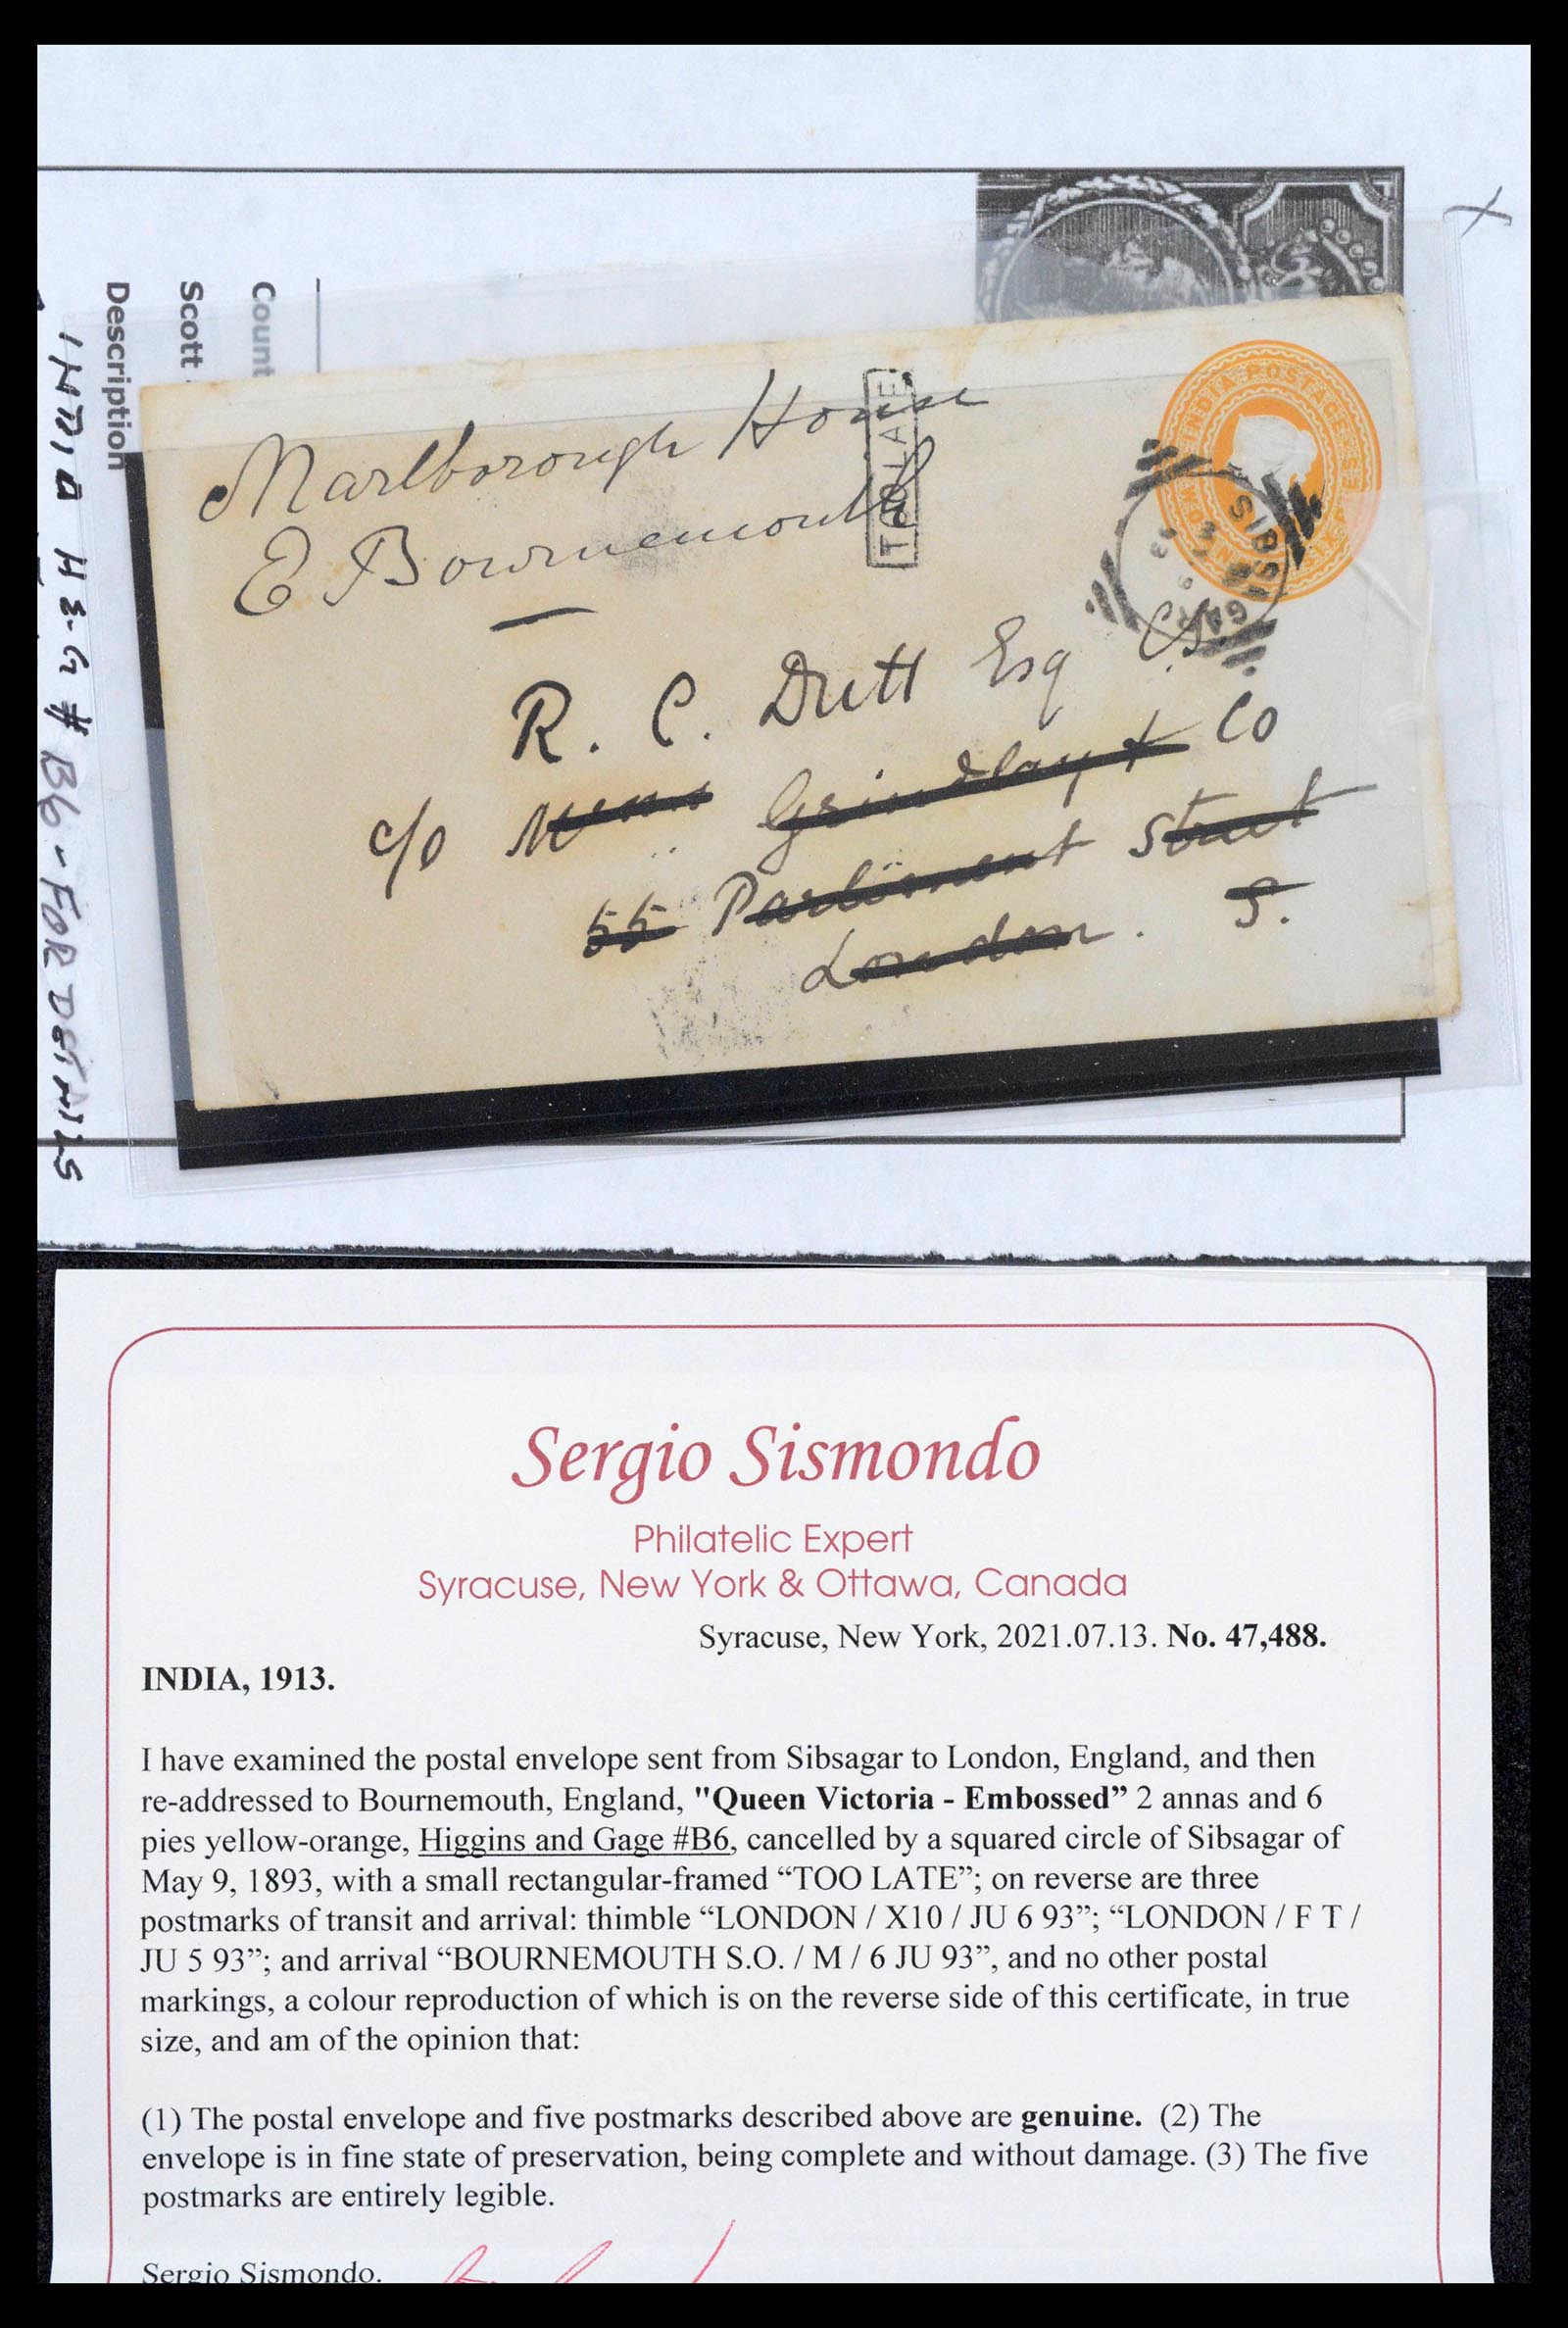 Count
Scott
Description
INDIA H&G # B6 - FOR DETAILS
X
INDIA POSTAGE
TOO LATE
SIBSAGAR
Marlborough House
E Bournemouth
R. C. Dutt Esq CS.
c/o Messrs Grindlay & Co
55 Parliament Street
London. S.
Sergio Sismondo
Philatelic Expert
Syracuse, New York & Ottawa, Canada
Syracuse, New York, 2021.07.13. No. 47,488.
INDIA, 1913.
I have examined the postal envelope sent from Sibsagar to London, England, and then
re-addressed to Bournemouth, England, "Queen Victoria - Embossed” 2 annas and 6
pies yellow-orange, Higgins and Gage #B6, cancelled by a squared circle of Sibsagar of
May 9, 1893, with a small rectangular-framed “TOO LATE”; on reverse are three
postmarks of transit and arrival: thimble “LONDON / X10 / JU 6 93”; “LONDON / F T /
JU 5 93”; and arrival “BOURNEMOUTH S.O. / M / 6 JU 93”, and no other postal
markings, a colour reproduction of which is on the reverse side of this certificate, in true
size, and am of the opinion that:
(1) The postal envelope and five postmarks described above are genuine. (2) The
envelope is in fine state of preservation, being complete and without damage. (3) The five
postmarks are entirely legible.
Sergio Sismondo.